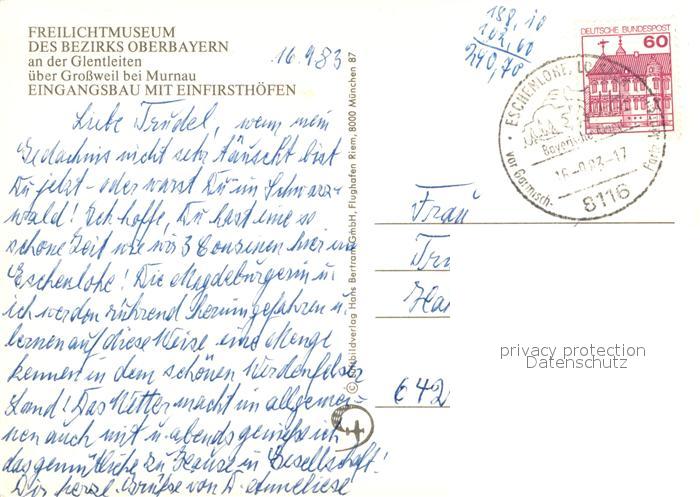 FREILICHTMUSEUM
DES BEZIRKS OBERBAYERN
an der Glentleiten
über Großweil bei Murnau
EINGANGSBAU MIT EINFIRSTHÖFEN
16.9.83
Liebe Trudel, wenn mein
Gedächtnis nicht sehr täuscht bist
Du jetzt - oder warst Du im Schwarz-
wald! Ich hoffe, Du hast eine so
schöne Zeit wie wir 3 Cousinen hier in
Eschenlohe! Die Magdeburgerin u.
ich werden rührend herumgefahren u.
lernen auf diese Weise eine Menge
kennen in dem schönen Werdenfelser
Land! Das Wetter macht im allgemei-
nen auch mit u. abends genieße ich
das gemütliche zu Hause in Gesellschaft!
Dir herzl. Grüße von D. Anneliese
© Farbbildverlag Hans Bertram GmbH, Flughafen Riem, 8000 München 87
188,10
102,60
290,70
DEUTSCHE BUNDESPOST
60
ESCHENLOHE, LO
Bayerische
16.-9.83-17
vor Garmisch-
Parte
8116
Frau
Tru
Ha
642
privacy protection
Datenschutz